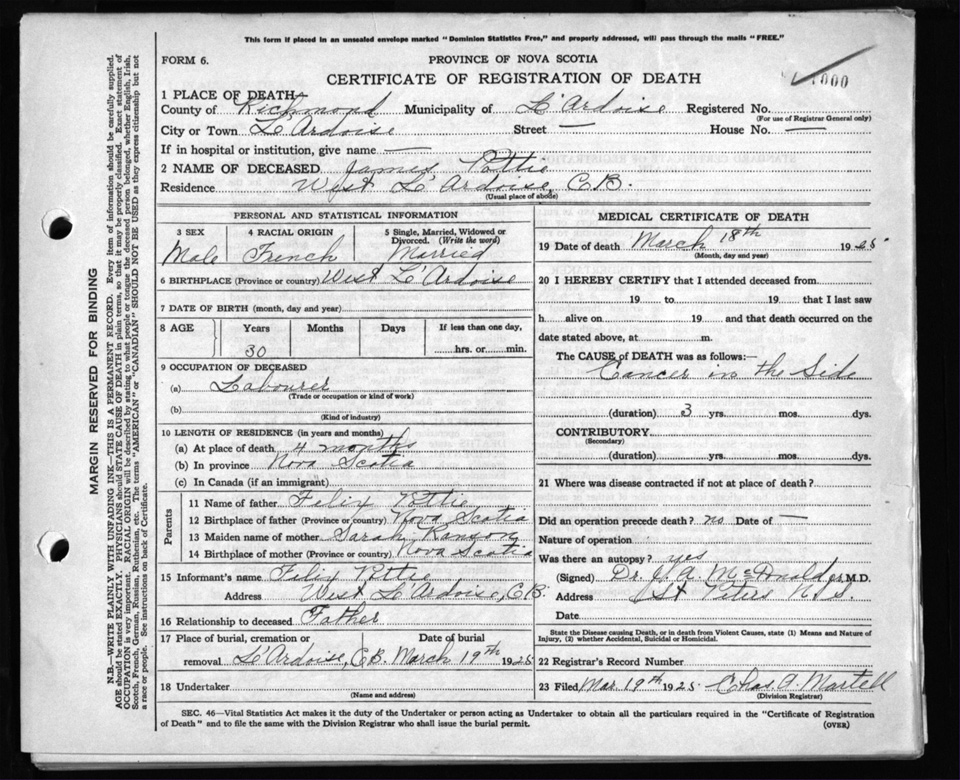 This form if placed in an unsealed envelope marked "Dominion Statistics Free," and properly addressed, will pass through the mails "FREE."
FORM 6.
PROVINCE OF NOVA SCOTIA
CERTIFICATE OF REGISTRATION OF DEATH
000
1 PLACE OF DEATH
County of Richmond Municipality of L'Ardoise Registered No.
(For use of Registrar General only)
City or Town L'Ardoise Street — House No. —
If in hospital or institution, give name —
2 NAME OF DECEASED James Pottie
Residence West L'Ardoise, C.B.
(Usual place of abode)
PERSONAL AND STATISTICAL INFORMATION
3 SEX 4 RACIAL ORIGIN 5 Single, Married, Widowed or Divorced. (Write the word)
Male French Married
6 BIRTHPLACE (Province or country) West L'Ardoise
7 DATE OF BIRTH (month, day and year)
8 AGE Years Months Days If less than one day,
30 hrs. or min.
9 OCCUPATION OF DECEASED
(a) Labourer
(Trade or occupation or kind of work)
(b)
(Kind of industry)
10 LENGTH OF RESIDENCE (in years and months)
(a) At place of death 4 months
(b) In province Nova Scotia
(c) In Canada (if an immigrant)
Parents
11 Name of father Felix Pottie
12 Birthplace of father (Province or country) Nova Scotia
13 Maiden name of mother Sarah Ranson
14 Birthplace of mother (Province or country) Nova Scotia
15 Informant's name Felix Pottie
Address West L'Ardoise, C.B.
16 Relationship to deceased Father
17 Place of burial, cremation or Date of burial
removal L'Ardoise, C.B. March 19th 1925
18 Undertaker
(Name and address)
MEDICAL CERTIFICATE OF DEATH
19 Date of death March 18th 1925
(Month, day and year)
20 I HEREBY CERTIFY that I attended deceased from
19 to 19 that I last saw
h alive on 19 and that death occurred on the
date stated above, at m.
The CAUSE of DEATH was as follows:—
Cancer in the Side
(duration) 3 yrs. mos. dys.
CONTRIBUTORY
(Secondary)
(duration) yrs. mos. dys.
21 Where was disease contracted if not at place of death?
Did an operation precede death? no Date of —
Nature of operation
Was there an autopsy? yes
(Signed) Dr. J. A. McDonald M.D.
Address St Peters N.S.
Date
State the Disease causing Death, or in death from Violent Causes, state (1) Means and Nature of
Injury, (2) whether Accidental, Suicidal or Homicidal.
22 Registrar's Record Number
23 Filed Mar 19th 1925 Chas. A. Martell
(Division Registrar)
SEC. 46—Vital Statistics Act makes it the duty of the Undertaker or person acting as Undertaker to obtain all the particulars required in the "Certificate of Registration
of Death" and to file the same with the Division Registrar who shall issue the burial permit.
(OVER)
MARGIN RESERVED FOR BINDING
N.B.—WRITE PLAINLY WITH UNFADING INK—THIS IS A PERMANENT RECORD. Every item of information should be carefully supplied.
AGE should be stated EXACTLY. PHYSICIANS should STATE CAUSE OF DEATH in plain terms, so that it may be properly classified. Exact statement of
OCCUPATION is very important. RACIAL ORIGIN will be described by stating to what people or tongue the deceased person belonged, whether English, Irish,
Scotch, French, German, Russian, Ruthenian, etc. The terms "AMERICAN" or "CANADIAN" SHOULD NOT BE USED as they express citizenship but not
a race or people. See instructions on back of Certificate.